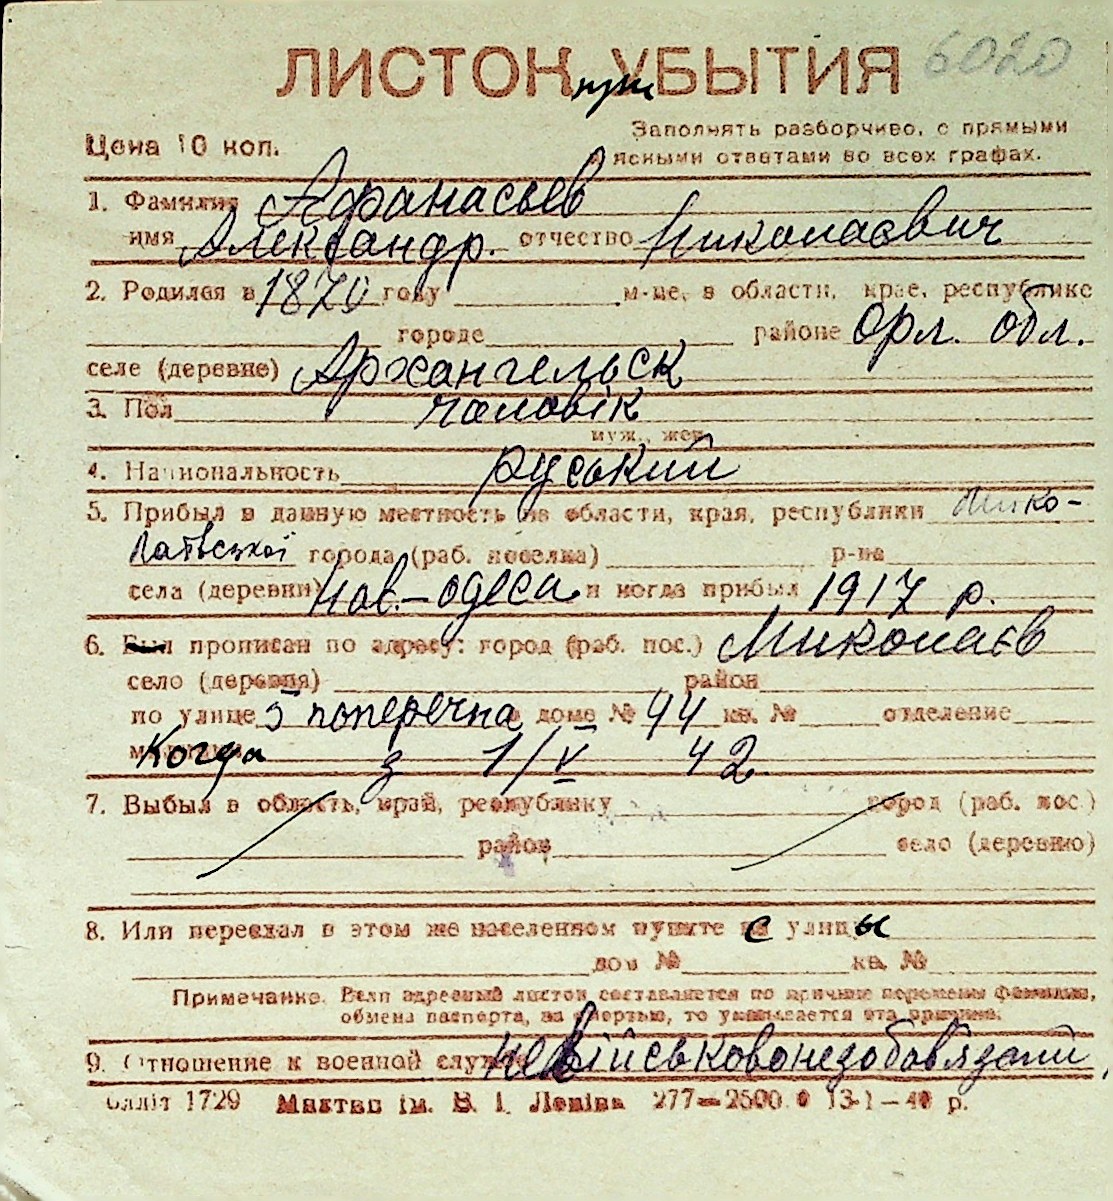 ЛИСТОК при УБЫТИЯ 6020
Цена 10 коп.
Заполнять разборчиво, с прямыми
и ясными ответами во всех графах.
1. Фамилия Афанасьев
имя Александр. отчество Николаевич
2. Родился в 1870 году м-це, в области, крае, республике
городе районе Орл. обл.
селе (деревне) Архангельск
3. Пол чоловік
муж., жен.
4. Национальность руський
5. Прибыл в данную местность из области, края, республики Мико-
лаївської города (раб. поселка) р-на
села (деревни) Нов.-Одеса и когда прибыл 1917 р.
6. Был прописан по адресу: город (раб. пос.) Миколаєв
село (деревня) район
по улице 5 поперечна доме № 94 кв. № отделение
Когда з 1/V 42
7. Выбыл в область, край, республику город (раб. пос.)
район село (деревню)
8. Или переехал в этом же населенном пункте с улицы
дом № кв. №
Примечание. Если адресный листок составляется по причине перемены фамилии,
обмена паспорта, за смертью, то указывается эта причина.
9. Отношение к военной службе невійськовонезобов'язаний
1729 ім. В. І. Леніна 277—2500 13-1—41 р.